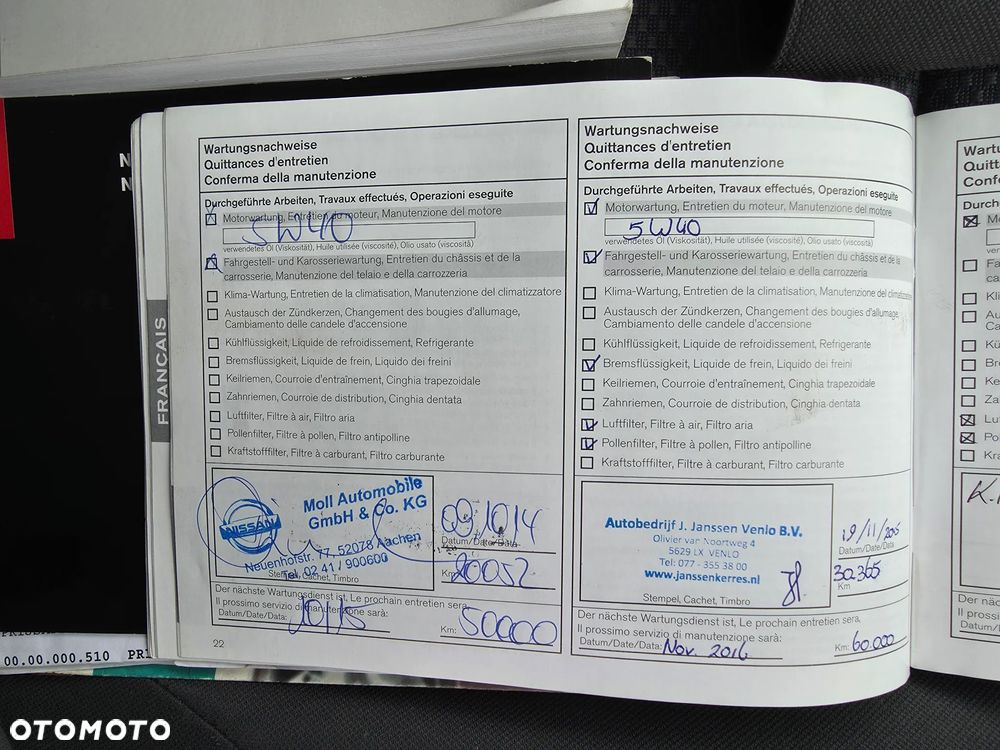 N
N
FRANCAIS
Wartungsnachweise
Quittances d'entretien
Conferma della manutenzione
Durchgeführte Arbeiten, Travaux effectués, Operazioni eseguite
Motorwartung, Entretien du moteur, Manutenzione del motore
5W40
verwendetes Öl (Viskosität), Huile utilisée (viscosité), Olio usato (viscosità)
Fahrgestell- und Karosseriewartung, Entretien du châssis et de la
carrosserie, Manutenzione del telaio e della carrozzeria
Klima-Wartung, Entretien de la climatisation, Manutenzione del climatizzatore
Austausch der Zündkerzen, Changement des bougies d'allumage,
Cambiamento delle candele d'accensione
Kühlflüssigkeit, Liquide de refroidissement, Refrigerante
Bremsflüssigkeit, Liquide de frein, Liquido dei freini
Keilriemen, Courroie d'entraînement, Cinghia trapezoidale
Zahnriemen, Courroie de distribution, Cinghia dentata
Luftfilter, Filtre à air, Filtro aria
Pollenfilter, Filtre à pollen, Filtro antipolline
Kraftstofffilter, Filtre à carburant, Filtro carburante
NISSAN
Moll Automobile
GmbH & Co. KG
Neuenhofstr. 77, 52078 Aachen
Tel. 02 41 / 900600
Stempel, Cachet, Timbro
09/10/14
Datum/Date/Data
Km
20052
Der nächste Wartungsdienst ist, Le prochain entretien sera,
Il prossimo servizio di manutenzione sarà:
Datum/Date/Data: 10/15 Km: 50000
22
Wartungsnachweise
Quittances d'entretien
Conferma della manutenzione
Durchgeführte Arbeiten, Travaux effectués, Operazioni eseguite
Motorwartung, Entretien du moteur, Manutenzione del motore
5W40
verwendetes Öl (Viskosität), Huile utilisée (viscosité), Olio usato (viscosità)
Fahrgestell- und Karosseriewartung, Entretien du châssis et de la
carrosserie, Manutenzione del telaio e della carrozzeria
Klima-Wartung, Entretien de la climatisation, Manutenzione del climatizzatore
Austausch der Zündkerzen, Changement des bougies d'allumage,
Cambiamento delle candele d'accensione
Kühlflüssigkeit, Liquide de refroidissement, Refrigerante
Bremsflüssigkeit, Liquide de frein, Liquido dei freini
Keilriemen, Courroie d'entraînement, Cinghia trapezoidale
Zahnriemen, Courroie de distribution, Cinghia dentata
Luftfilter, Filtre à air, Filtro aria
Pollenfilter, Filtre à pollen, Filtro antipolline
Kraftstofffilter, Filtre à carburant, Filtro carburante
Autobedrijf J. Janssen Venlo B.V.
Olivier van Noortweg 4
5629 LX VENLO
Tel: 077 - 355 38 00
www.janssenkerres.nl
Stempel, Cachet, Timbro
19/11/2015
Datum/Date/Data
30.365
Km
Der nächste Wartungsdienst ist, Le prochain entretien sera,
Il prossimo servizio di manutenzione sarà:
Datum/Date/Data: Nov. 2016 Km: 60.000
Quitt
Conf
Durch
Mo
Fa
Kli
Au
Ca
Kü
Br
Ke
Za
Lu
Po
Kra
K.
Stem
Der näc
Il pross
Datum/D
00.00.000.510 PR1
OTOMOTO